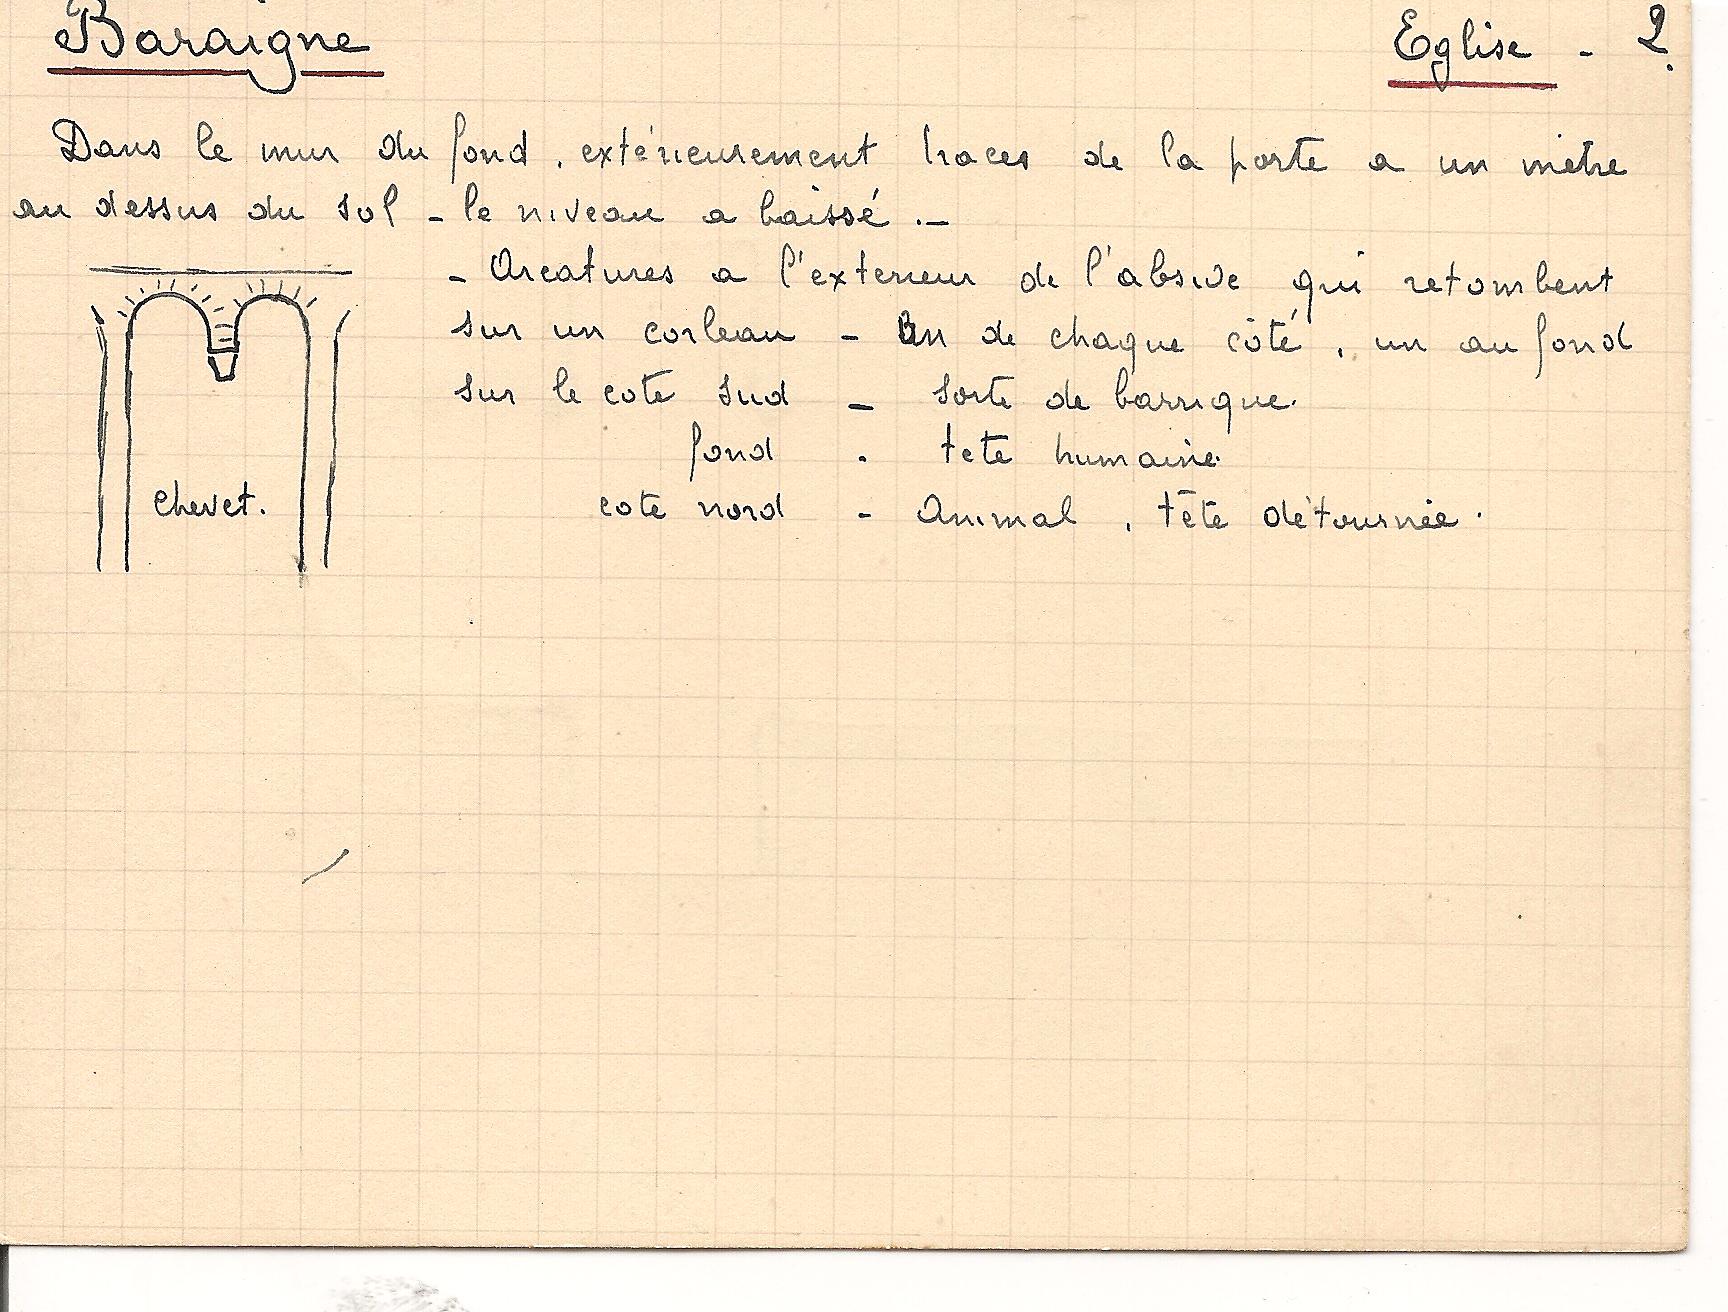 Baraigne
Eglise - 2.
Dans le mur du fond, extérieurement traces de la porte a un metre
au dessus du sol - le niveau a baissé .-
- Arcatures a l'exterieur de l'abside qui retombent
sur un corbeau - Un de chaque côté, un au fond
sur le cote sud - sorte de barrique.
fond - tete humaine.
cote nord - Animal, tête détournée.
chevet.